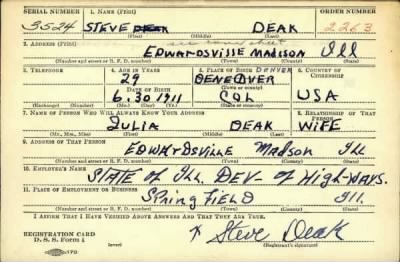 SERIAL NUMBER 1. NAME (Print) ORDER NUMBER
3524 STEVE DEAK DEAK 2263
(First) (Middle) (Last)
2. ADDRESS (Print) see correct sheet
EDWARDSVILLE MADISON Ill
(Number and street or R. F. D. number) (Town) (County) (State)
3. TELEPHONE 4. AGE IN YEARS 5. PLACE OF BIRTH DENVER 6. COUNTRY OF CITIZENSHIP
29 DENEOVER
DATE OF BIRTH (Town or county)
6.30 1911 COL USA
(Exchange) (Number) (Mo.) (Day) (Yr.) (State or country)
7. NAME OF PERSON WHO WILL ALWAYS KNOW YOUR ADDRESS 8. RELATIONSHIP OF THAT PERSON
JULIA DEAK WIFE
(Mr., Mrs., Miss) (First) (Middle) (Last)
9. ADDRESS OF THAT PERSON
EDWARDSVILLE MADSON Ill
(Number and street or R. F. D. number) (Town) (County) (State)
10. EMPLOYER'S NAME
STATE OF Ill. DEV- OF HIGH-WAYS.
11. PLACE OF EMPLOYMENT OR BUSINESS
SPRINGFIELD Ill.
(Number and street or R. F. D. number) (Town) (County) (State)
I AFFIRM THAT I HAVE VERIFIED ABOVE ANSWERS AND THAT THEY ARE TRUE.
REGISTRATION CARD
D. S. S. Form 1 x Steve Deak
(Registrant's signature)